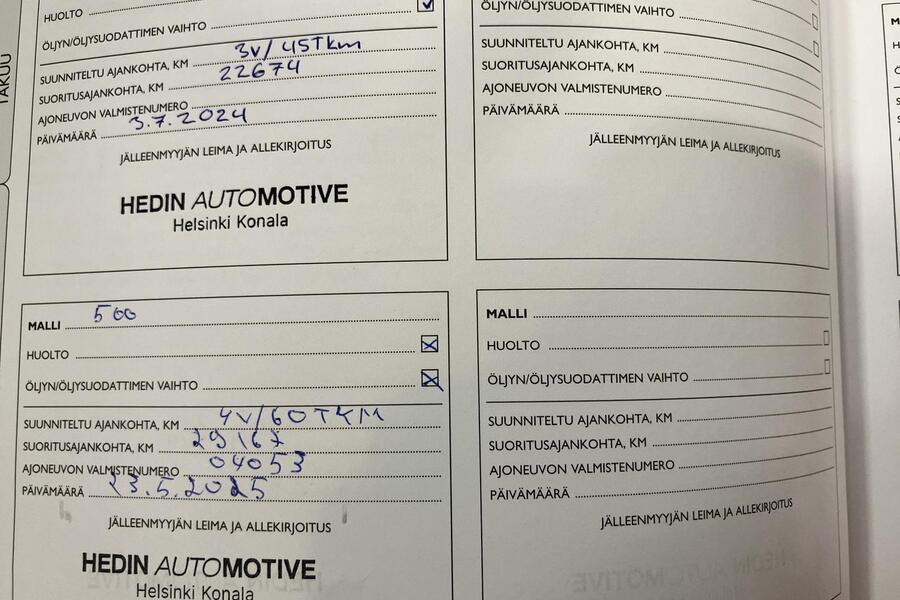 TAKUU
HUOLTO
ÖLJYN/ÖLJYSUODATTIMEN VAIHTO
SUUNNITELTU AJANKOHTA, KM 3v/45Tkm
SUORITUSAJANKOHTA, KM 22674
AJONEUVON VALMISTENUMERO
PÄIVÄMÄÄRÄ 3.7.2024
JÄLLEENMYYJÄN LEIMA JA ALLEKIRJOITUS
HEDIN AUTOMOTIVE
Helsinki Konala
MALLI 500
HUOLTO
ÖLJYN/ÖLJYSUODATTIMEN VAIHTO
SUUNNITELTU AJANKOHTA, KM 4v/60TKM
SUORITUSAJANKOHTA, KM 29167
AJONEUVON VALMISTENUMERO 04053
PÄIVÄMÄÄRÄ 23.5.2025
JÄLLEENMYYJÄN LEIMA JA ALLEKIRJOITUS
HEDIN AUTOMOTIVE
Helsinki Konala
ÖLJYN/ÖLJYSUODATTIMEN VAIHTO
SUUNNITELTU AJANKOHTA, KM
SUORITUSAJANKOHTA, KM
AJONEUVON VALMISTENUMERO
PÄIVÄMÄÄRÄ
JÄLLEENMYYJÄN LEIMA JA ALLEKIRJOITUS
MALLI
HUOLTO
ÖLJYN/ÖLJYSUODATTIMEN VAIHTO
SUUNNITELTU AJANKOHTA, KM
SUORITUSAJANKOHTA, KM
AJONEUVON VALMISTENUMERO
PÄIVÄMÄÄRÄ
JÄLLEENMYYJÄN LEIMA JA ALLEKIRJOITUS